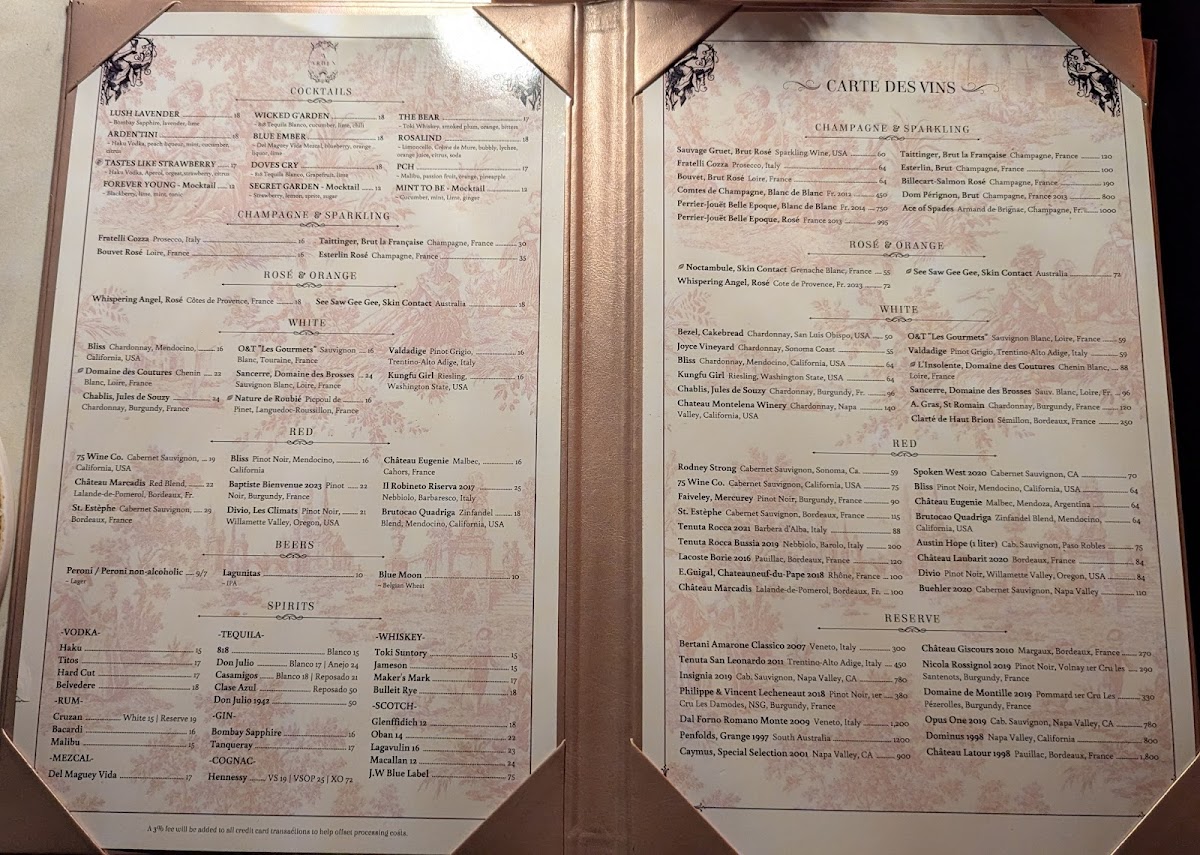 ARDEN
COCKTAILS
LUSH LAVENDER 18
~ Bombay Sapphire, lavender, lime
ARDENTINI 18
~ Haku Vodka, peach liqueur, mint, cucumber,
citrus
TASTES LIKE STRAWBERRY 17
~ Haku Vodka, Aperol, yogurt, strawberry, citrus
FOREVER YOUNG - Mocktail 12
~ Blackberry, lime, mint, tonic
WICKED G'ARDEN 18
~ 818 Tequila Blanco, cucumber, lime, chili
BLUE EMBER 18
~ Del Maguey Vida Mezcal, blueberry, orange
liquor, lime
DOVES CRY 18
~ 818 Tequila Blanco, Grapefruit, lime
SECRET GARDEN - Mocktail 12
~ Strawberry, lemon, sprite, sugar
THE BEAR 17
~ Toki Whiskey, smoked plum, orange, bitters
ROSALIND 18
~ Limoncello, Crème de Mure, bubbly, lychee,
orange juice, citrus, soda
PCH 17
~ Malibu, passion fruit, orange, pineapple
MINT TO BE - Mocktail 12
~ Cucumber, mint, Lime, ginger
CHAMPAGNE & SPARKLING
Fratelli Cozza Prosecco, Italy 16
Bouvet Rosé Loire, France 16
Taittinger, Brut la Française Champagne, France 30
Esterlin Rosé Champagne, France 35
ROSÉ & ORANGE
Whispering Angel, Rosé Côtes de Provence, France 18
See Saw Gee Gee, Skin Contact Australia 18
WHITE
Bliss Chardonnay, Mendocino, 16
California, USA
Domaine des Coutures Chenin 22
Blanc, Loire, France
Chablis, Jules de Souzy 24
Chardonnay, Burgundy, France
O&T "Les Gourmets" Sauvignon 16
Blanc, Touraine, France
Sancerre, Domaine des Brosses 24
Sauvignon Blanc, Loire, France
Nature de Roubié Picpoul de 16
Pinet, Languedoc-Roussillon, France
Valdadige Pinot Grigio, 16
Trentino-Alto Adige, Italy
Kungfu Girl Riesling, 16
Washington State, USA
RED
75 Wine Co. Cabernet Sauvignon, 19
California, USA
Château Marcadis Red Blend, 22
Lalande-de-Pomerol, Bordeaux, Fr.
St. Estèphe Cabernet Sauvignon, 29
Bordeaux, France
Bliss Pinot Noir, Mendocino, 16
California
Baptiste Bienvenue 2023 Pinot 22
Noir, Burgundy, France
Divio, Les Climats Pinot Noir, 21
Willamette Valley, Oregon, USA
Château Eugenie Malbec, 16
Cahors, France
Il Robineto Riserva 2017 25
Nebbiolo, Barbaresco, Italy
Brutocao Quadriga Zinfandel 18
Blend, Mendocino, California, USA
BEERS
Peroni / Peroni non-alcoholic 9/7
~ Lager
Lagunitas 10
~ IPA
Blue Moon 10
~ Belgian Wheat
SPIRITS
-VODKA-
Haku 15
Titos 17
Hard Cut 17
Belvedere 18
-RUM-
Cruzan White 15 | Reserve 19
Bacardi 16
Malibu 15
-MEZCAL-
Del Maguey Vida 17
-TEQUILA-
818 Blanco 15
Don Julio Blanco 17 | Anejo 24
Casamigos Blanco 18 | Reposado 21
Clase Azul Reposado 50
Don Julio 1942 50
-GIN-
Bombay Sapphire 16
Tanqueray 17
-COGNAC-
Hennessy VS 19 | VSOP 25 | XO 72
-WHISKEY-
Toki Suntory 15
Jameson 15
Maker's Mark 17
Bulleit Rye 18
-SCOTCH-
Glenffidich 12 18
Oban 14 22
Lagavulin 16 23
Macallan 12 24
J.W Blue Label 75
A 3% fee will be added to all credit card transactions to help offset processing costs.
CARTE DES VINS
CHAMPAGNE & SPARKLING
Sauvage Gruet, Brut Rosé Sparkling Wine, USA 60
Fratelli Cozza Prosecco, Italy 64
Bouvet, Brut Rosé Loire, France 64
Comtes de Champagne, Blanc de Blanc Fr. 2012 450
Perrier-Jouët Belle Epoque, Blanc de Blanc Fr. 2014 750
Perrier-Jouët Belle Epoque, Rosé France 2013 995
Taittinger, Brut la Française Champagne, France 120
Esterlin, Brut Champagne, France 100
Billecart-Salmon Rosé Champagne, France 190
Dom Pérignon, Brut Champagne, France 2013 800
Ace of Spades Armand de Brignac, Champagne, Fr. 1000
ROSÉ & ORANGE
Noctambule, Skin Contact Grenache Blanc, France 55
Whispering Angel, Rosé Cote de Provence, Fr. 2023 72
See Saw Gee Gee, Skin Contact Australia 72
WHITE
Bezel, Cakebread Chardonnay, San Luis Obispo, USA 50
Joyce Vineyard Chardonnay, Sonoma Coast 55
Bliss Chardonnay, Mendocino, California, USA 64
Kungfu Girl Riesling, Washington State, USA 64
Chablis, Jules de Souzy Chardonnay, Burgundy, Fr. 96
Chateau Montelena Winery Chardonnay, Napa 140
Valley, California, USA
O&T "Les Gourmets" Sauvignon Blanc, Loire, France 59
Valdadige Pinot Grigio, Trentino-Alto Adige, Italy 59
L'Insolente, Domaine des Coutures Chenin Blanc, 88
Loire, France
Sancerre, Domaine des Brosses Sauv. Blanc, Loire, Fr. 96
A. Gras, St Romain Chardonnay, Burgundy, France 120
Clarté de Haut Brion Sémillon, Bordeaux, France 250
RED
Rodney Strong Cabernet Sauvignon, Sonoma, Ca. 59
75 Wine Co. Cabernet Sauvignon, California, USA 75
Faiveley, Mercurey Pinot Noir, Burgundy, France 90
St. Estèphe Cabernet Sauvignon, Bordeaux, France 115
Tenuta Rocca 2021 Barbera d'Alba, Italy 88
Tenuta Rocca Bussia 2019 Nebbiolo, Barolo, Italy 200
Lacoste Borie 2016 Pauillac, Bordeaux, France 120
E.Guigal, Chateauneuf-du-Pape 2018 Rhône, France 100
Château Marcadis Lalande-de-Pomerol, Bordeaux, Fr. 100
Spoken West 2020 Cabernet Sauvignon, CA 70
Bliss Pinot Noir, Mendocino, California, USA 64
Château Eugenie Malbec, Mendoza, Argentina 64
Brutocao Quadriga Zinfandel Blend, Mendocino, 64
California, USA
Austin Hope (1 liter) Cab. Sauvignon, Paso Robles 75
Château Laubarit 2020 Bordeaux, France 84
Divio Pinot Noir, Willamette Valley, Oregon, USA 84
Buehler 2020 Cabernet Sauvignon, Napa Valley 110
RESERVE
Bertani Amarone Classico 2007 Veneto, Italy 300
Tenuta San Leonardo 2011 Trentino-Alto Adige, Italy 450
Insignia 2019 Cab. Sauvignon, Napa Valley, CA 780
Philippe & Vincent Lecheneaut 2018 Pinot Noir, 1er 380
Cru Les Damodes, NSG, Burgundy, France
Dal Forno Romano Monte 2009 Veneto, Italy 1,200
Penfolds, Grange 1997 South Australia 1200
Caymus, Special Selection 2001 Napa Valley, CA 900
Château Giscours 2010 Margaux, Bordeaux, France 270
Nicola Rossignol 2019 Pinot Noir, Volnay 1er Cru les 290
Santenots, Burgundy, France
Domaine de Montille 2019 Pommard 1er Cru Les 330
Pézerolles, Burgundy, France
Opus One 2019 Cab. Sauvignon, Napa Valley, CA 780
Dominus 1998 Napa Valley, California 800
Château Latour 1998 Pauillac, Bordeaux, France 1,800